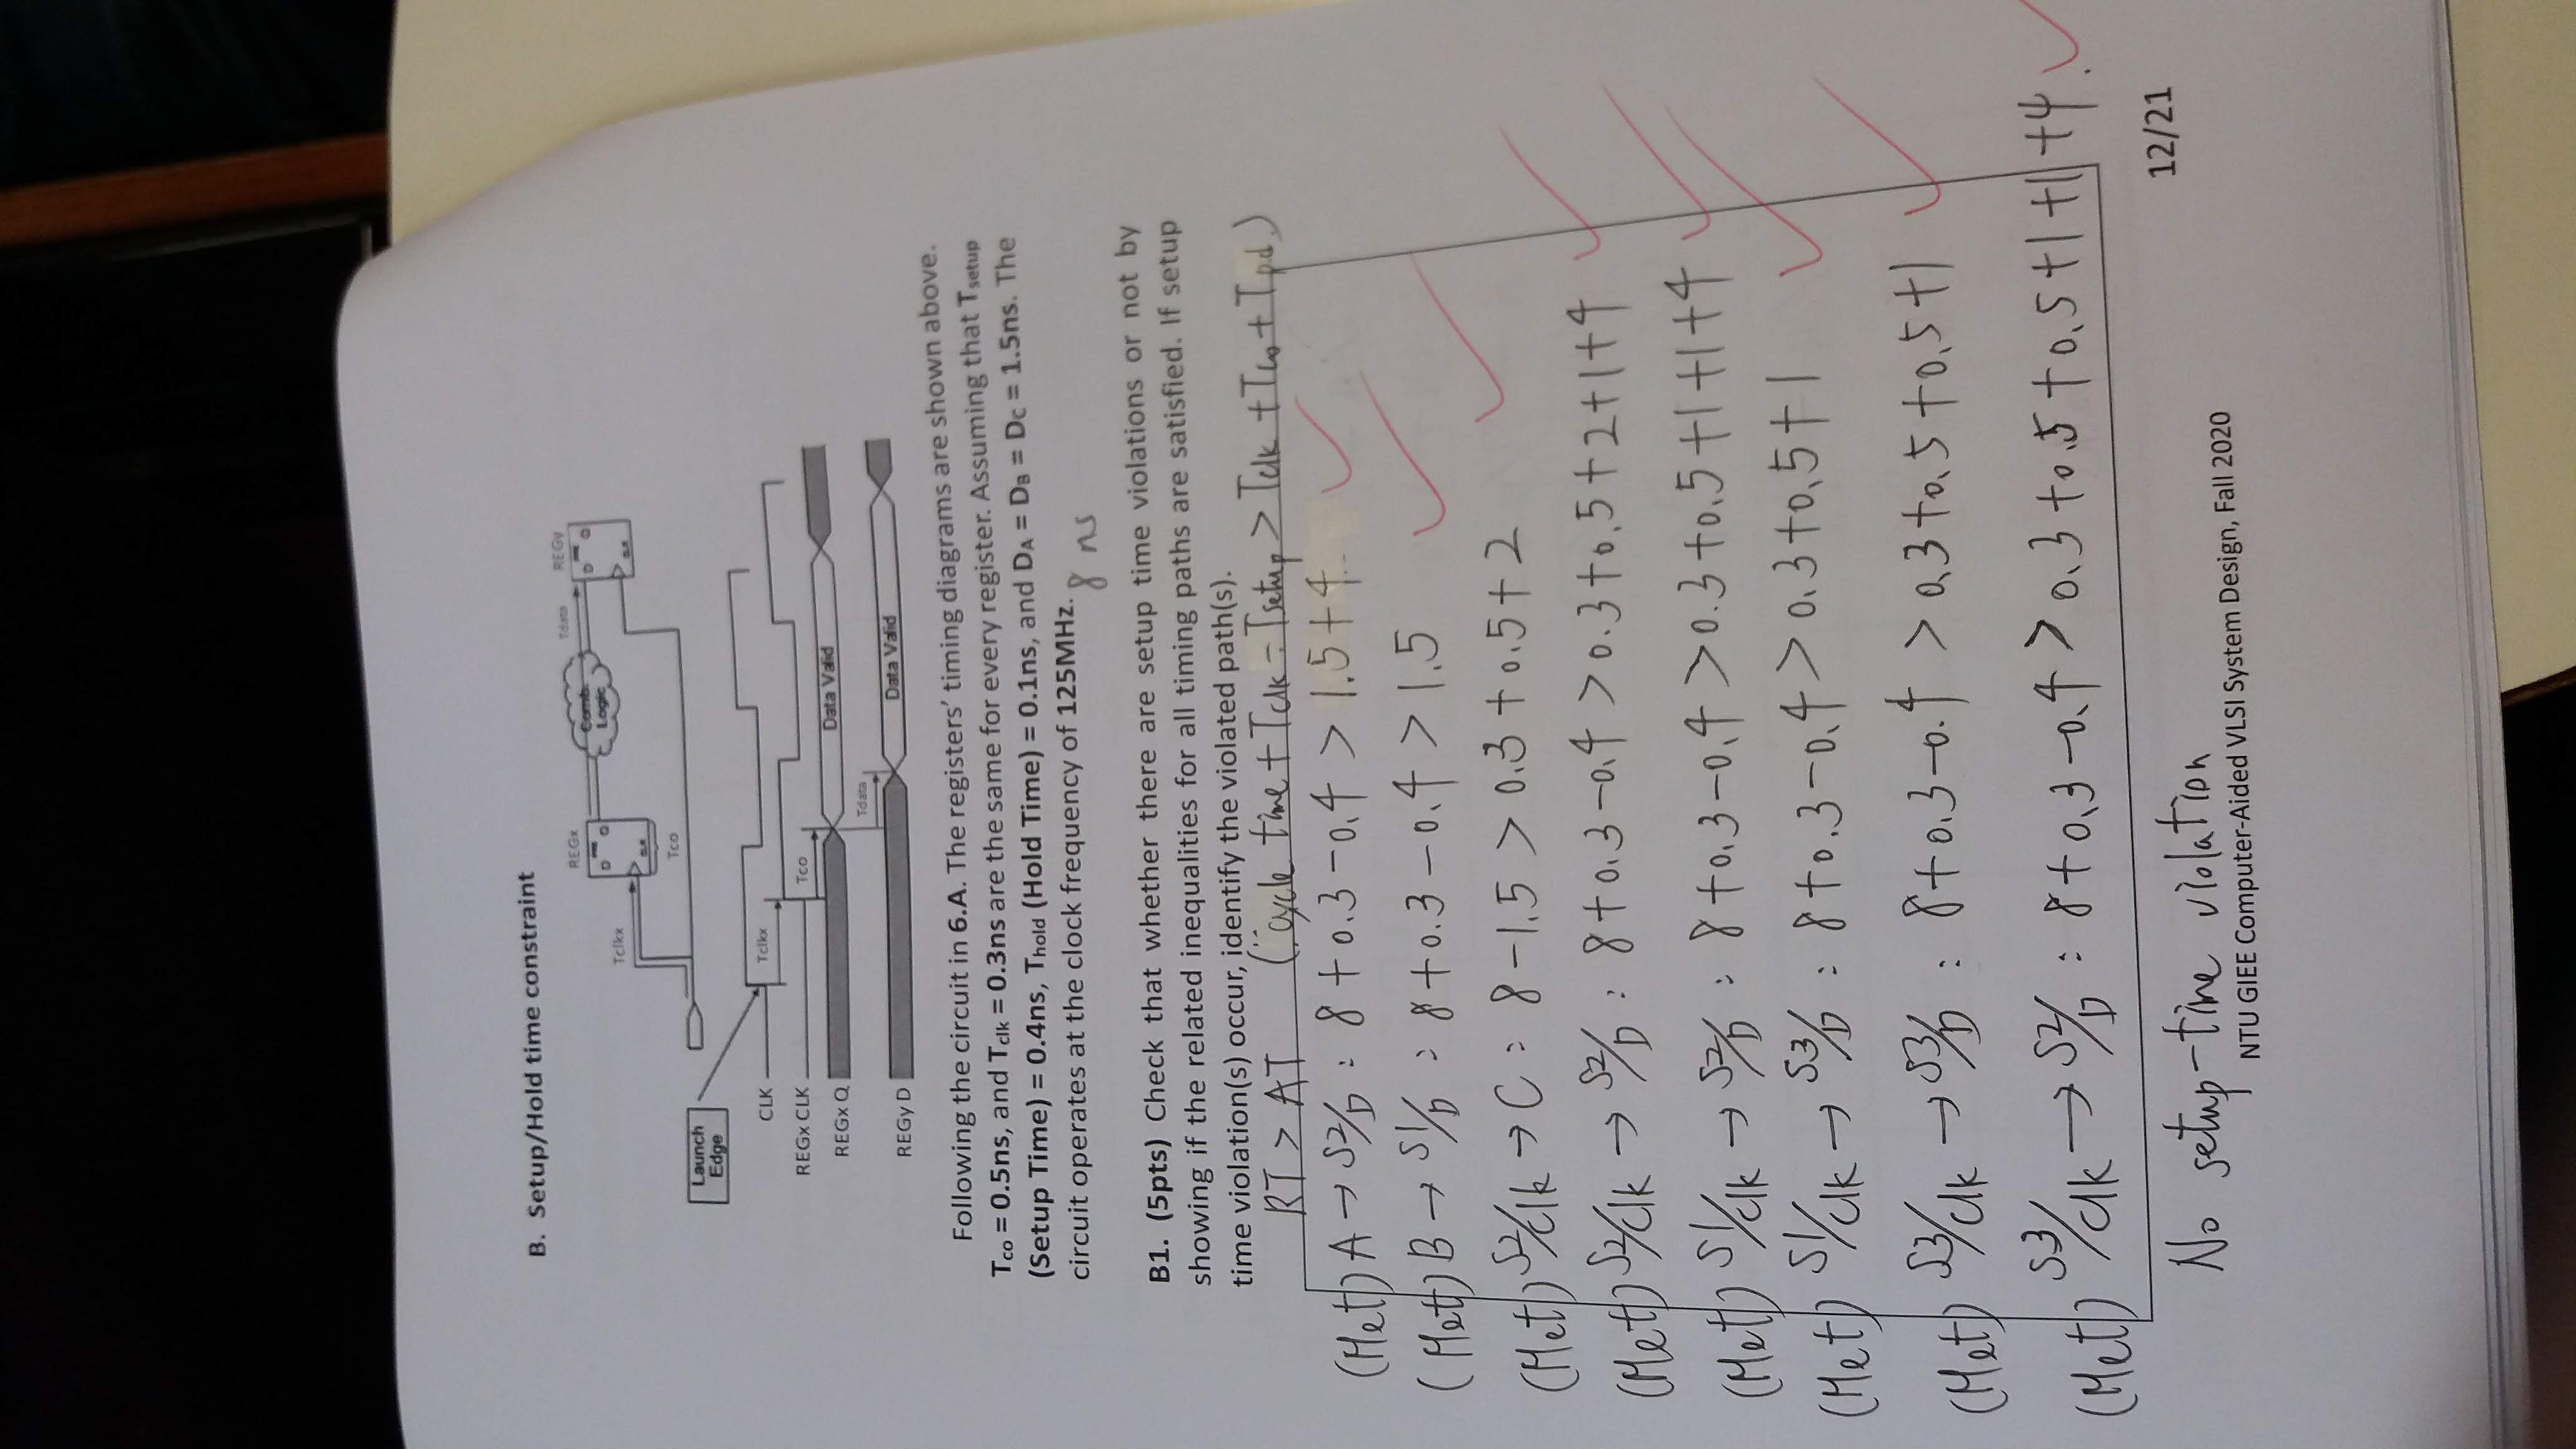 B. Setup/Hold time constraint
REGx
Tdata
REGy
Comb.
Logic
D
Q
D
Q
Tclkx
CLR
CLR
Tco
Launch
Edge
CLK
Tclkx
REGx CLK
Tco
REGx Q
Data Valid
Tdata
REGy D
Data Valid
Following the circuit in 6.A. The registers' timing diagrams are shown above.
Tco = 0.5ns, and Tclk = 0.3ns are the same for every register. Assuming that Tsetup
(Setup Time) = 0.4ns, Thold (Hold Time) = 0.1ns, and DA = DB = DC = 1.5ns. The
circuit operates at the clock frequency of 125MHz.
8 ns
B1. (5pts) Check that whether there are setup time violations or not by
showing if the related inequalities for all timing paths are satisfied. If setup
time violation(s) occur, identify the violated path(s).
RT > AT (∵ cycle time + Tclk - Tsetup > Tclk + Tco + Tpd)
(Met) A → S2/D : 8 + 0.3 - 0.4 > 1.5 + 4
(Met) B → S1/D : 8 + 0.3 - 0.4 > 1.5
(Met) S2/clk → C : 8 - 1.5 > 0.3 + 0.5 + 2
(Met) S2/clk → S2/D : 8 + 0.3 - 0.4 > 0.3 + 0.5 + 2 + 1 + 4
(Met) S1/clk → S2/D : 8 + 0.3 - 0.4 > 0.3 + 0.5 + 1 + 1 + 4
(Met) S1/clk → S3/D : 8 + 0.3 - 0.4 > 0.3 + 0.5 + 1
(Met) S3/clk → S3/D : 8 + 0.3 - 0.4 > 0.3 + 0.5 + 0.5 + 1
(Met) S3/clk → S2/D : 8 + 0.3 - 0.4 > 0.3 + 0.5 + 0.5 + 1 + 1 + 4.
12/21
No setup-time violation
NTU GIEE Computer-Aided VLSI System Design, Fall 2020